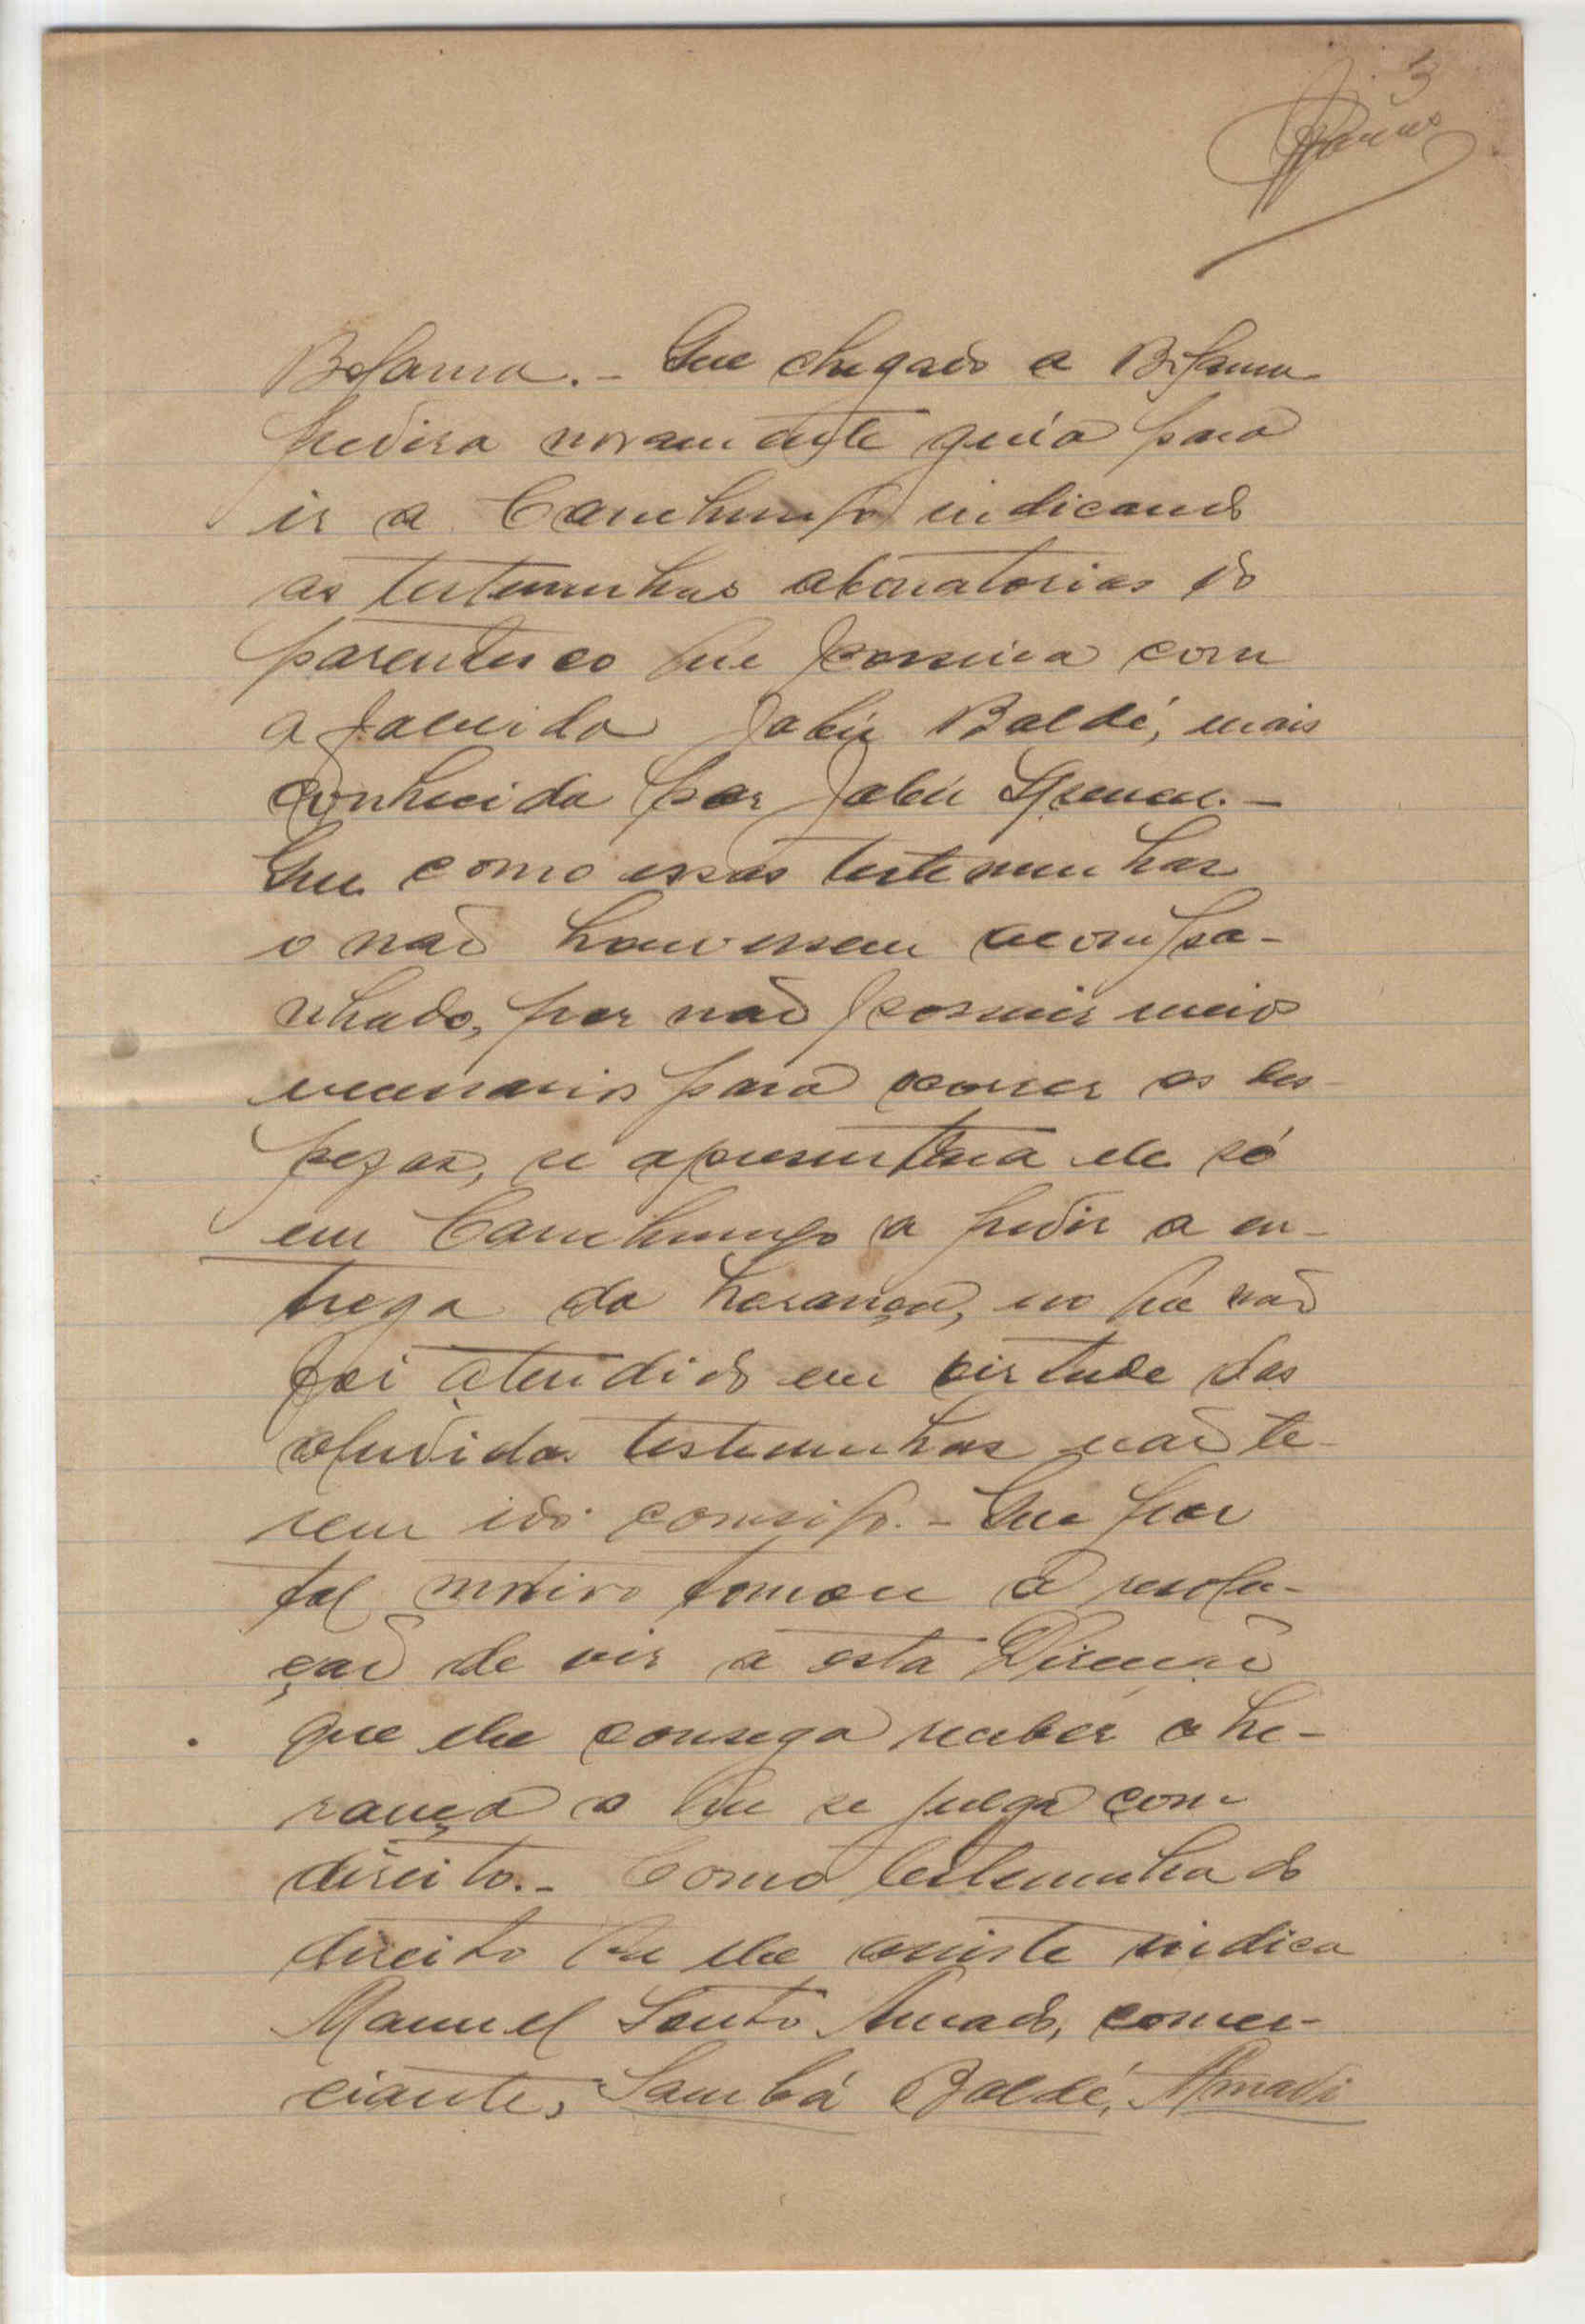 3
Bolama. - Que chegado a Bolama
pedira novamente guia para
ir a Canchungo indicando
as testemunhas abonatorias do
parentesco que possuia com
a falecida Jabú Baldé, mais
conhecida por Jabú
Que como essas testemunhas
o não houvessem acompa-
nhado, por não possuir meios
necessarios para correr as des-
pezas, se apresentara ele só
em Canchungo a pedir a en-
trega da herança, no que não
foi atendido em virtude das
aludidas testemunhas não te-
rem ido comsigo. - Que por
tal motivo tomou a resolu-
ção de vir a esta Direcção
que ele consega receber a he-
rança a que se julga com
direito. - Como testemunha do
direito que ele assiste indica
Manuel Souto Amado, comer-
ciante, Sambá Baldé, Amadi